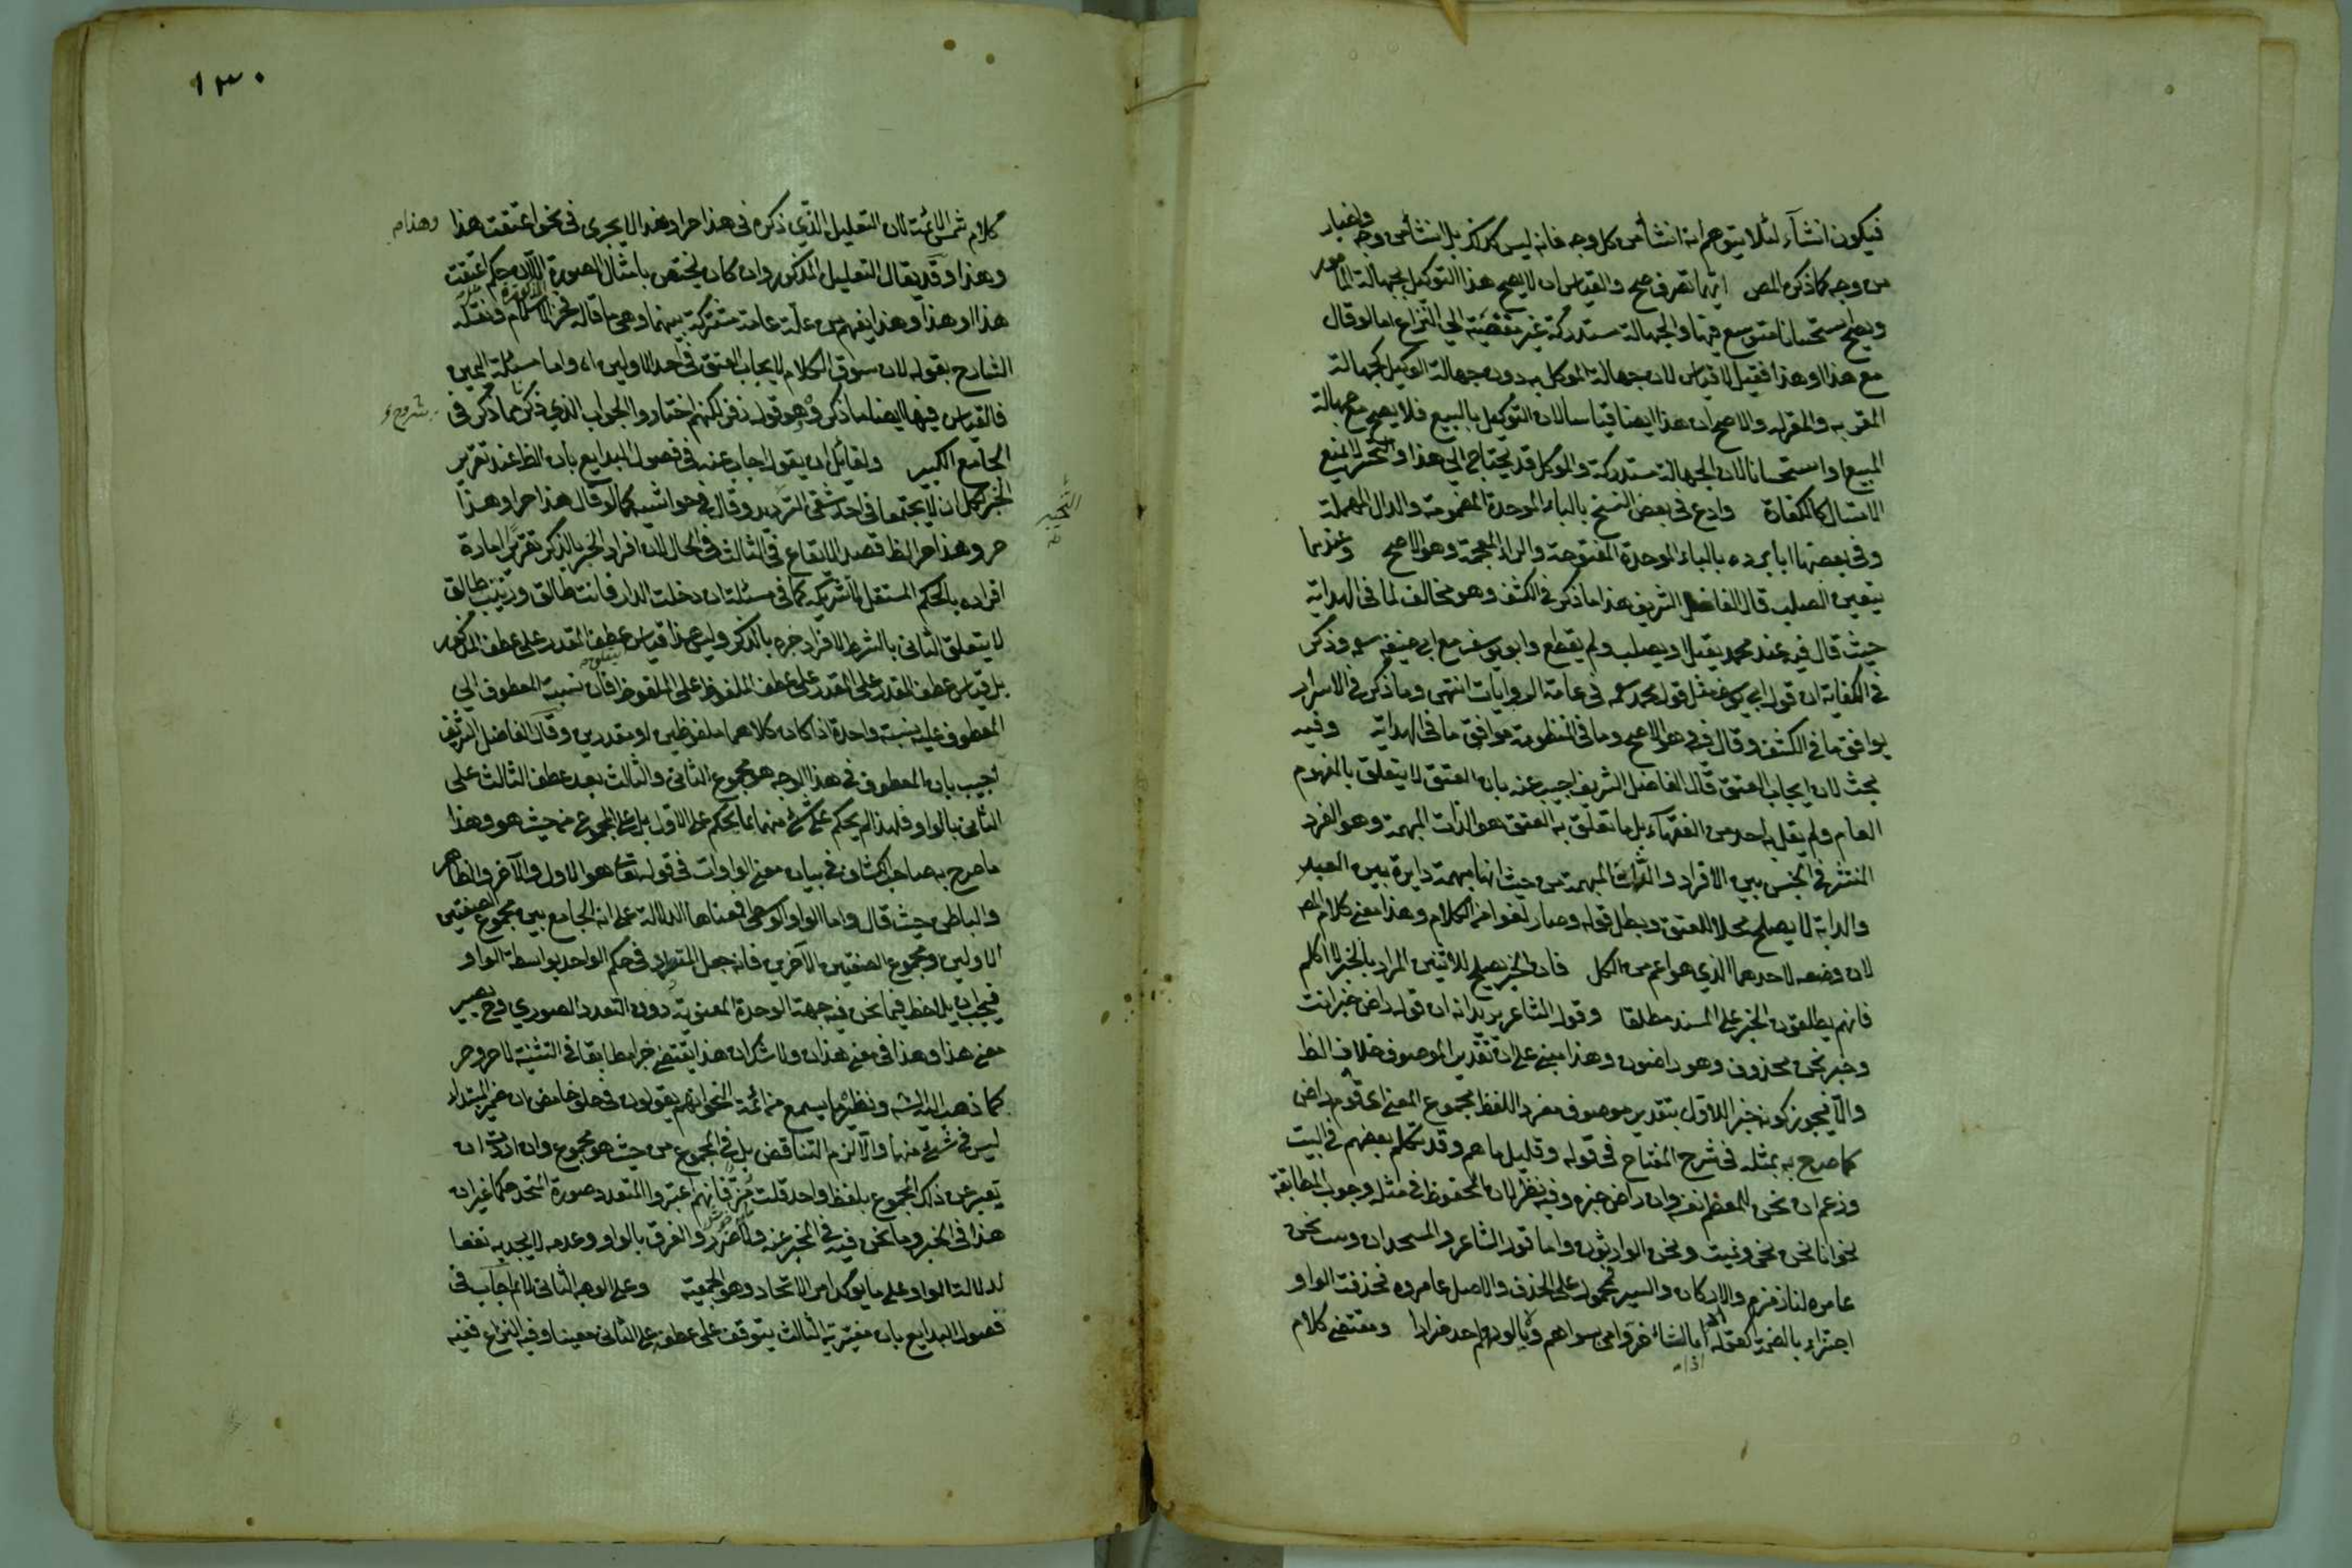 فيكون انشآء لئلا يتوهم انه انشأ من كل وجه فانه ليس كذلك بل انشأ من وجه واخبار
من وجه كما ذكره المص ايهما تصرف صح والقياس ان لا يصح هذا التوكيل لجهالة المأمور
ويصح استحسانا متوسع فيها والجهالة مستدركة غير مفضية الى النزاع اما لو قال
مع هذا او هذا فقيل لا قياس لان جهالة الموكل به دون جهالة الوكيل كجهالة
المقر به والمقر له والاصح ان هذا ايضا قياسا لان التوكيل بالبيع فلا يصح مع جهالة
المبيع او استحسانا لان الجهالة مستدركة والموكل قد يحتاج الى هذا والتخيير لا يمنع
الامتثال كالكفارة وادع في بعض النسخ بالباء الموحدة المضمومة والدال المهملة
وفي بعضها اما يرده بالباء الموحدة المفتوحة والزاء المعجمة وهو الاصح وعندهما
يتعين الصلب قال الفاضل الشريف هذا ما ذكر في الكشف وهو مخالف لما في الهداية
حيث قال فيه عند محمد يقتل او يصلب ولم يقطع وابو يوسف مع ابي حنيفة وذكر
في الكفاية ان قول ابي يوسف مثل قول محمد في عامة الروايات انتهى وما ذكر في الاسرار
يوافق ما في الكشف وقال فيه وهو الاصح وما في المنظومة موافق ما في الهداية وفيه
بحث لان ايجاب العتق قال الفاضل الشريف اجيب عنه بان العتق لا يتعلق بالمفهوم
العام ولم يقل به احد من الفقهاء بل ما تعلق به العتق هو الذات المبهمة وهو الفرد
المنتشر في الجنس بين الافراد والذات المبهمة من حيث انها مبهمة دايرة بين العبد
والدابة لا يصلح محلا للعتق وبطل قوله وصار لغوا من الكلام وهذا معنى كلام المص
لان وضعه لاحدهما الذي هو اعم من الكل فان الخبر يصلح للاثنين المراد بالخبر لا اكلم
فانهم يطلقون الخبر على المسند مطلقا وقول الشاعر يريد انه ان قوله راض خبر انت
وخبر نحن محذوف وهو راضون وهذا مبني على ان تقدير الموصوف خلاف الظ
والا فيجوز كونه خبرا للاول بتقدير موصوف مفرد اللفظ مجموع المعنى اى قوم راض
كما صرح به بمثله في شرح المفتاح في قوله وقليل ما هم وقد تكلم بعضهم في البيت
وزعم ان نحن للمعظم نفسه وان راض خبره وفيه نظر لان المحفوظ في مثله وجوب المطابقة
نحو انا نحن نحي ونميت ونحن الوارثون واما قول الشاعر والمسجدان وبيت نحن
عامره لنا وزمزم والاركان والسير فمحمول على الحذف والاصل عامروه فحذفت الواو
اجتزاء بالضمة كقوله اذا ما شاء ضروا من سواهم ولا يألو لهم احد ضرارا ومقتضى كلام
اذا ما
١٣٠
كلام شمس الائمة لان التعليل الذي ذكره في هذا حر او هذا لا يجرى في نحو اعتقت هذا
وهذا م
وهذا وقد يقال التعليل المذكور وان كان يختص بامثال الصورة المذكورة الا ان حكم اعتقت
هذا او هذا وهذا يفهم من علة عامة مشتركة بينهما وهى ما قاله فخر الاسلام ونقله
الشارح بقوله لان سوق الكلام لايجاب العتق في احد الاولين اه واما مسئلة اليمين
فالقياس فيها ايضا ما ذكر وهو قول زفر لكنهم اختاروا الجواب الذي ذكرنا مما ذكر في
شروح
الجامع الكبير ولقائل ان يقول اجاب عنه في فصول البدايع بان الظ عند تقرير
الخبر لكل ان لا يجتمعا في احد شقى الترديد وقال في حواشيه كما لو قال هذا حر او هذا
حر وهذا حر الظ قصد الايقاع في الثالث في الحال لان افراد الخبر بالذكر تقرير امارة
افراده بالحكم المستقل لا تشريكه كما في مسئلة ان دخلت الدار فانت طالق وزينب طالق
لا يتعلق الثاني بالشرط لافراد خبره بالذكر وليس هذا قياس عطف المقدر على عطف المذكور
بل قياس عطف المقدر على المقدر على عطف الملفوظ على الملفوظ فان نسبة المعطوف الى
المعطوف عليه نسبة واحدة اذا كان كلاهما ملفوظين او مقدرين وقال الفاضل الشريف
اجيب بان المعطوف في هذا الوجه هو مجموع الثاني والثالث بعد عطف الثالث على
الثاني بالواو فلهذا لم يحكم على شئ منهما بما يحكم على الاول بل على المجموع من حيث هو وهذا
ما صرح به صاحب الكشاف في بيان معنى الواوات في قوله تعالى هو الاول والآخر والظاهر
والباطن حيث قال واما الواو الوسطى فمعناها الدلالة على انه الجامع بين مجموع الصفتين
الاوليين ومجموع الصفتين الاخريين فانه جعل المتعدد في حكم الواحد بواسطة الواو
فيجب ان يلاحظ فيما نحن فيه جهة الوحدة المعنوية دون التعدد الصوري وح يصير
معنى هذا وهذا في معنى هذان ولا شك ان هذا يقتضى خبرا مطابقا في التثنية لا حر وحر
كما ذهب اليه الش ونظيره ما يسمع من ائمة النحو انهم يقولون في حلو حامض ان ضمير المبتداء
ليس في شئ منهما والا لزم التناقض بل في المجموع من حيث هو مجموع وان اردت ان
تعبر عن ذلك المجموع بلفظ واحد قلت مز فانهم اعتبروا المتعدد صورة متحد حكما غير ان
هذا في الخبر وما نحن فيه في المخبر عنه ولا ضرر والفرق بالواو وعدمه لا يجديه نفعا
لدلالة الواو على ما يؤكد امر الاتحاد وهو الجمعية وعلى الوجه الثاني لا تم اجاب في
فصول البدايع بان مغيرية الثالث يتوقف على عطفه على الثاني معينا وفيه النزاع ففيه